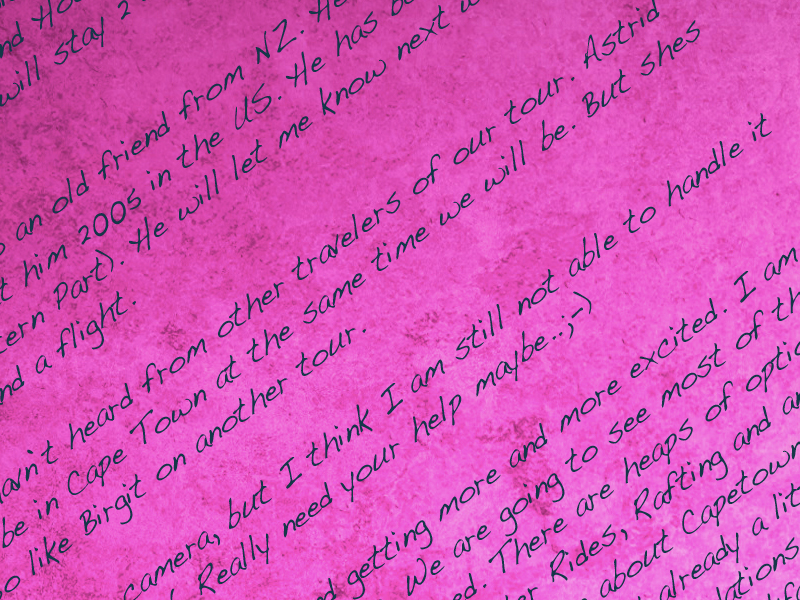 will stay 2
an old friend from NZ. He
him 2005 in the US. He has
Part). He will let me know next
a flight.
heard from other travelers of our tour. Astrid
be in Cape Town at the same time we will be. But shes
like Birgit on another tour.
camera, but I think I am still not able to handle it
Really need your help maybe..;-)
getting more and more excited. I am
We are going to see most of
There are heaps of
Rides, Rafting and
about Capetown
already a